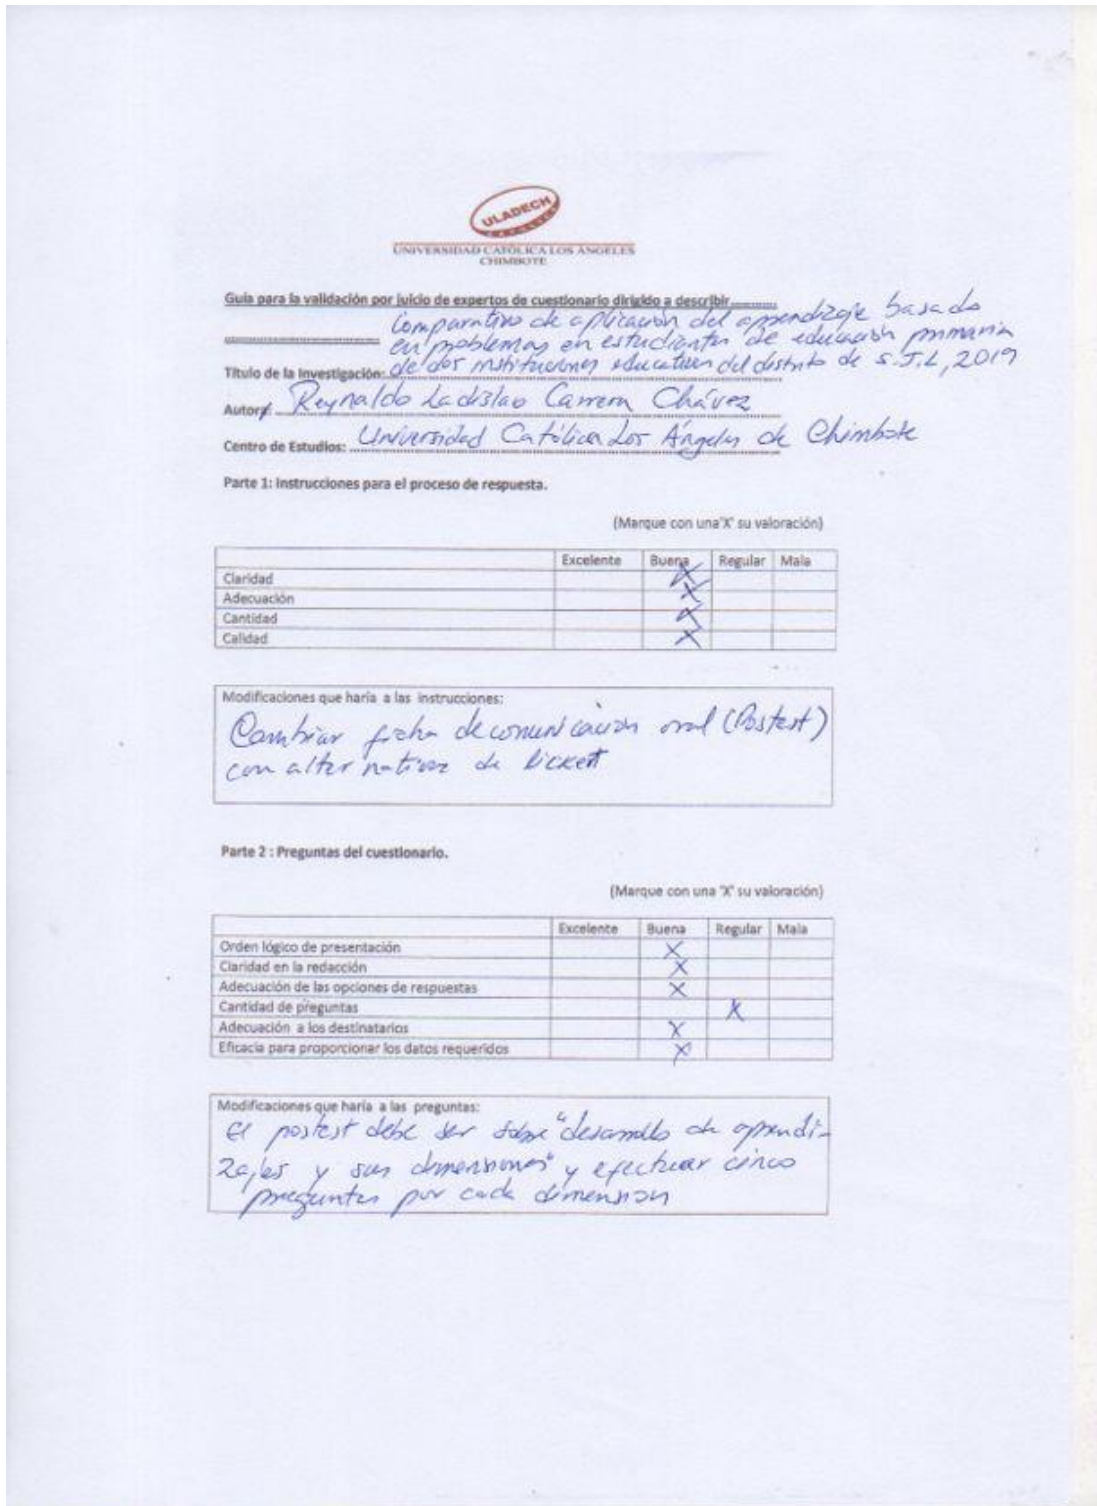 ULADECH
CATÓLICA
UNIVERSIDAD CATÓLICA LOS ÁNGELES
CHIMBOTE
Guía para la validación por juicio de expertos de cuestionario dirigido a describir............
Comparativo de aplicación del aprendizaje basado
en problemas en estudiantes de educación primaria
Título de la Investigación: de dos instituciones educativas del distrito de S.J.L, 2019
Autor: Reynaldo Ladislao Carrera Chávez
Centro de Estudios: Universidad Católica Los Ángeles de Chimbote
Parte 1: Instrucciones para el proceso de respuesta.
(Marque con una 'X' su valoración)
Excelente Buena Regular Mala
Claridad X
Adecuación X
Cantidad X
Calidad X
Modificaciones que haría a las instrucciones:
Cambiar ficha de comunicación oral (Postest)
con alternativas de lickett
Parte 2 : Preguntas del cuestionario.
(Marque con una 'X' su valoración)
Excelente Buena Regular Mala
Orden lógico de presentación X
Claridad en la redacción X
Adecuación de las opciones de respuestas X
Cantidad de preguntas X
Adecuación a los destinatarios X
Eficacia para proporcionar los datos requeridos X
Modificaciones que haría a las preguntas:
El postest debe ser sobre "desarrollo de aprendi-
zajes y sus dimensiones" y efectuar cinco
preguntas por cada dimensión